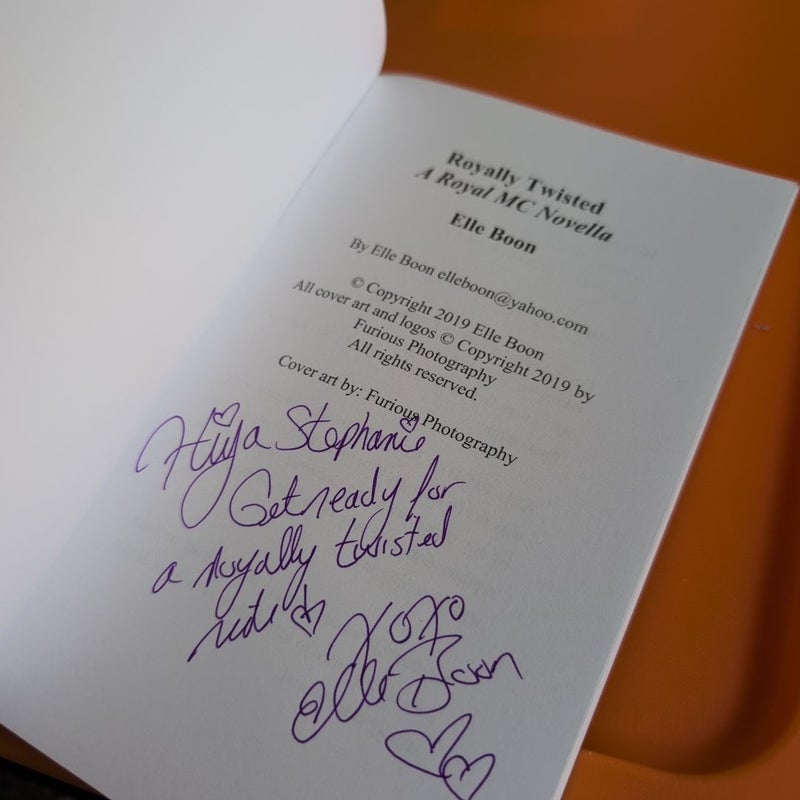 Royally Twisted
A Royal MC Novella
Elle Boon
By Elle Boon elleboon@yahoo.com
© Copyright 2019 Elle Boon
All cover art and logos © Copyright 2019 by
Furious Photography
All rights reserved.
Cover art by: Furious Photography
Hiya Stephanie
Get ready for
a royally twisted
ride
XOXO
Elle Boon